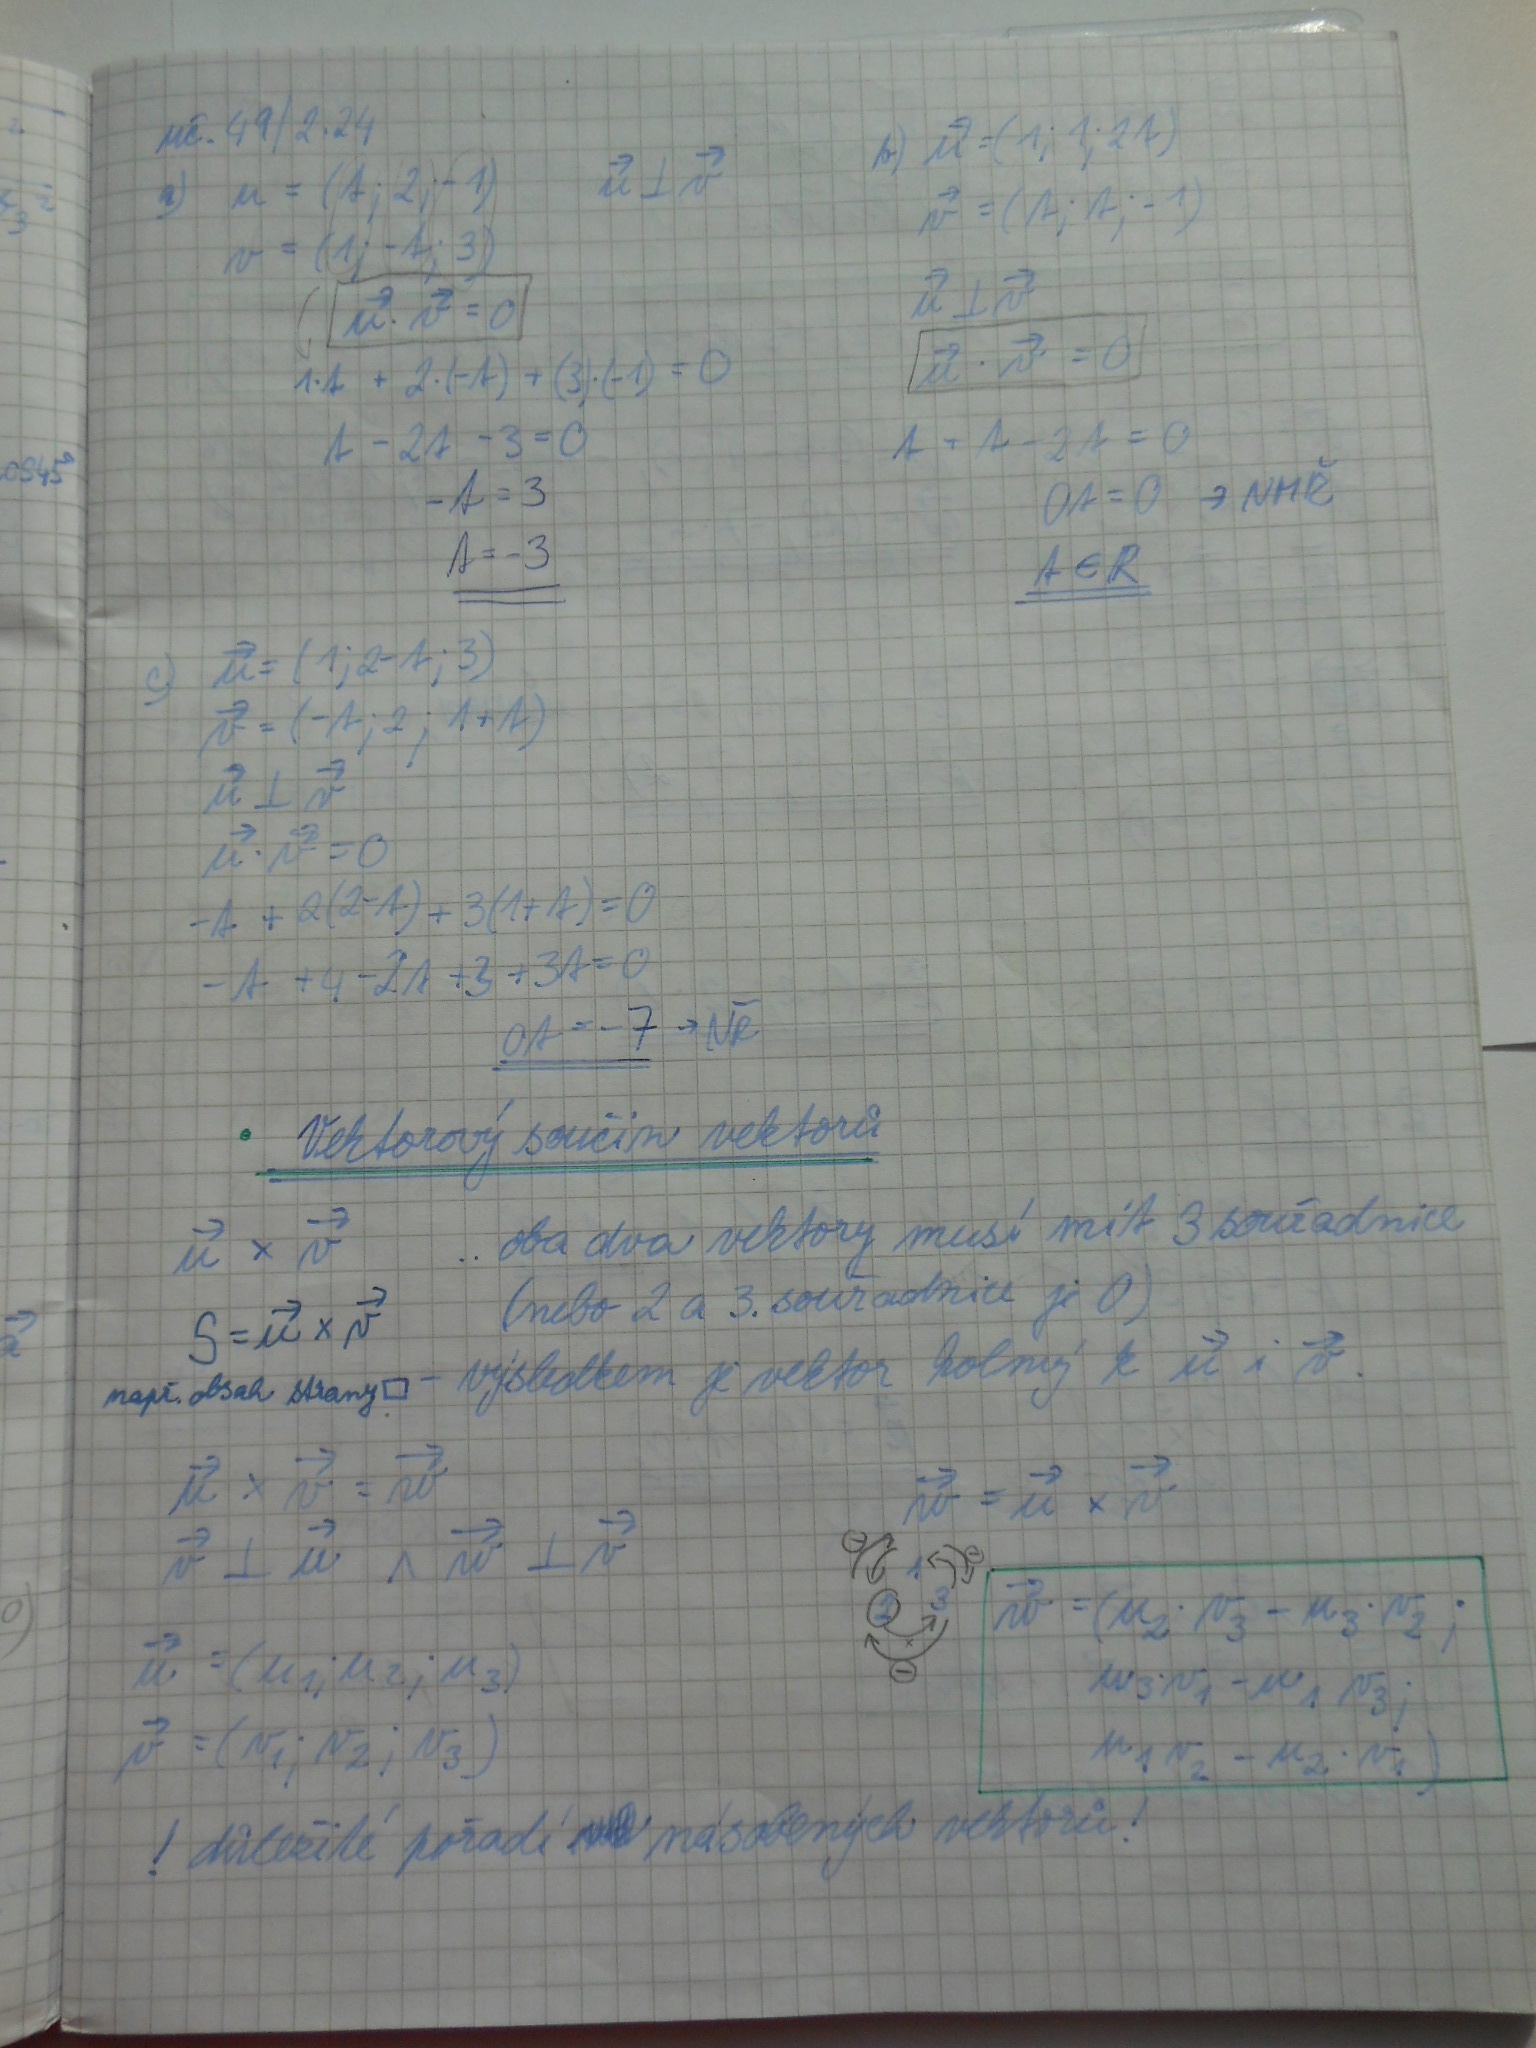 uč. 49/2.24
a) u = (t; 2; -1)   u⃗ ⊥ v⃗
v = (1; -t; 3)
u⃗ · v⃗ = 0
1·t + 2·(-t) + (3)·(-1) = 0
t - 2t - 3 = 0
-t = 3
t = -3
b) u⃗ = (1; 1; 2t)
v⃗ = (t; t; -1)
u⃗ ⊥ v⃗
u⃗ · v⃗ = 0
t + t - 2t = 0
0t = 0 → NMŘ
t ∈ R
c) u⃗ = (1; 2-t; 3)
v⃗ = (-t; 2; 1+t)
u⃗ ⊥ v⃗
u⃗ · v⃗ = 0
-t + 2(2-t) + 3(1+t) = 0
-t + 4 - 2t + 3 + 3t = 0
0t = -7 → NŘ
• Vektorový součin vektorů
u⃗ × v⃗ .. oba dva vektory musí mít 3 souřadnice
(nebo 2 a 3. souřadnice je 0)
S = u⃗ × v⃗
např. obsah strany □ - výsledkem je vektor kolmý k u⃗ i v⃗.
u⃗ × v⃗ = w⃗
v⃗ ⊥ u⃗ ∧ w⃗ ⊥ v⃗
u⃗ = (u₁; u₂; u₃)
v⃗ = (v₁; v₂; v₃)
w⃗ = u⃗ × v⃗
1
2 3
w⃗ = (u₂·v₃ - u₃·v₂;
u₃·v₁ - u₁ v₃;
u₁ v₂ - u₂·v₁)
! důležité pořadí násobených vektorů!